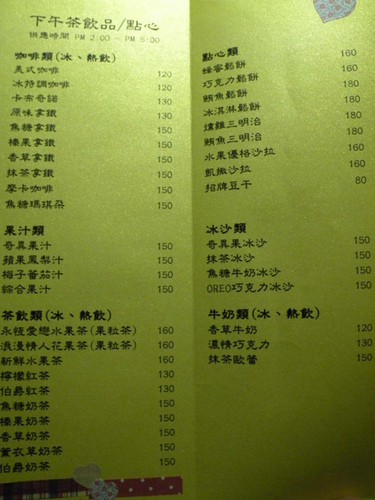 下午茶飲品/點心
供應時間 PM 2:00 - PM 5:00
咖啡類(冰、熱飲)
美式咖啡 120
冰特調咖啡 120
卡布奇諾 130
原味拿鐵 130
焦糖拿鐵 150
榛果拿鐵 150
香草拿鐵 150
抹茶拿鐵 150
摩卡咖啡 150
焦糖瑪琪朵 150
果汁類
奇異果汁 150
蘋果鳳梨汁 150
梅子蕃茄汁 150
綜合果汁 150
茶飲類(冰、熱飲)
永恆愛戀水果茶(果粒茶) 160
浪漫情人花果茶(果粒茶) 160
新鮮水果茶 160
檸檬紅茶 130
伯爵紅茶 130
焦糖奶茶 150
榛果奶茶 150
香草奶茶 150
薰衣草奶茶 150
伯爵奶茶 150
點心類
蜂蜜鬆餅 160
巧克力鬆餅 160
鮪魚鬆餅 180
冰淇淋鬆餅 180
燻雞三明治 180
鮪魚三明治 180
水果優格沙拉 160
凱撒沙拉 160
招牌豆干 80
冰沙類
奇異果冰沙 150
抹茶冰沙 150
焦糖牛奶冰沙 150
OREO巧克力冰沙 150
牛奶類(冰、熱飲)
香草牛奶 120
濃情巧克力 130
抹茶歐蕾 150